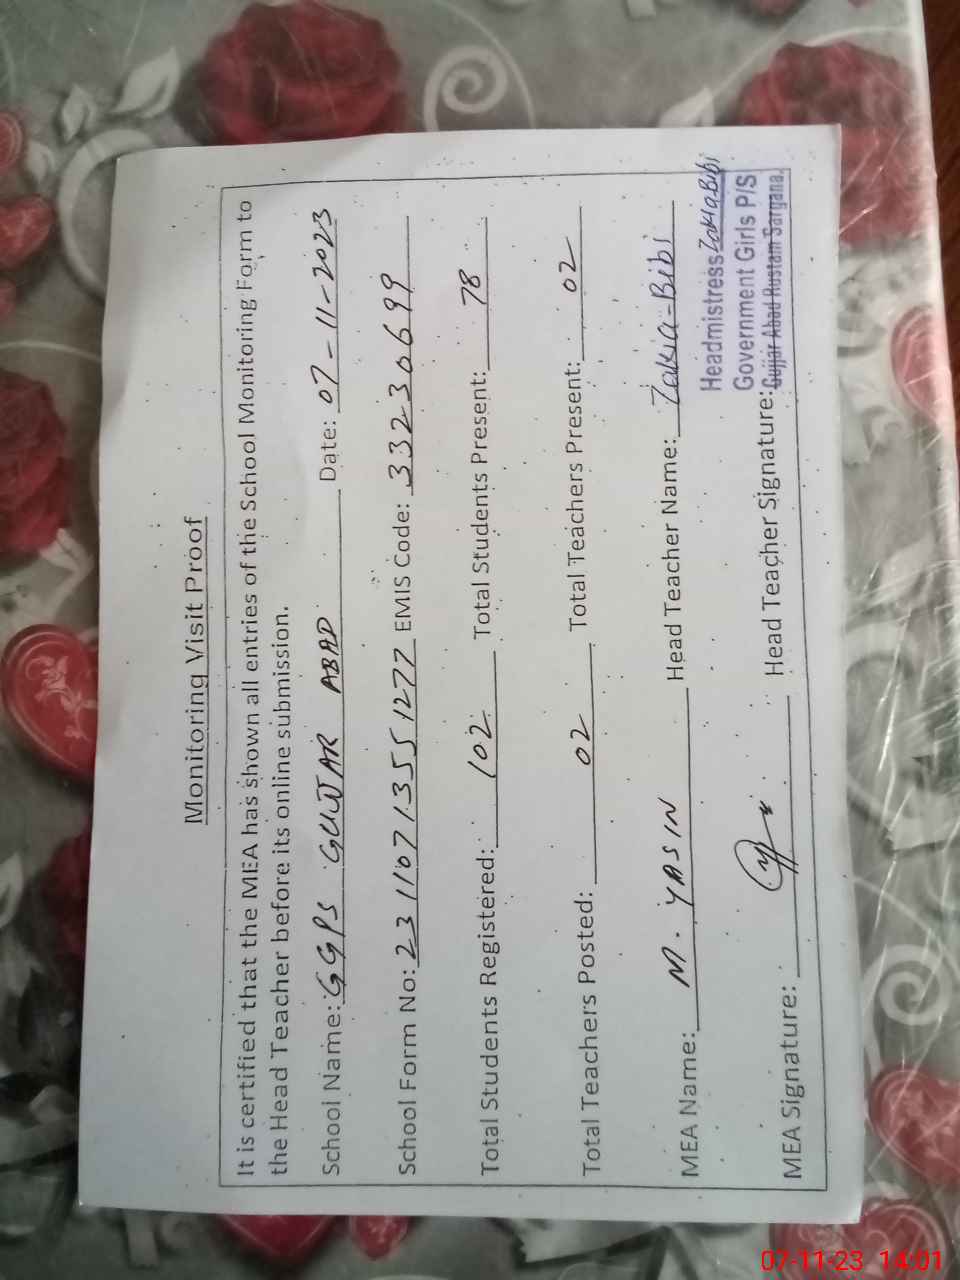 Monitoring Visit Proof
It is certified that the MEA has shown all entries of the School Monitoring Form to
the Head Teacher before its online submission.
School Name: GGPS GUJJAR ABAD Date: 07-11-2023
School Form No: 23110713551277 EMIS Code: 33230699
Total Students Registered: 102 Total Students Present: 78
Total Teachers Posted: 02 Total Teachers Present: 02
MEA Name: M. YASIN Head Teacher Name: Zakia-Bibi
Headmistress Zakia Bibi
Government Girls P/S
Gujjar Abad Rustam Sargana.
MEA Signature: Head Teacher Signature:
07-11-23 14:01